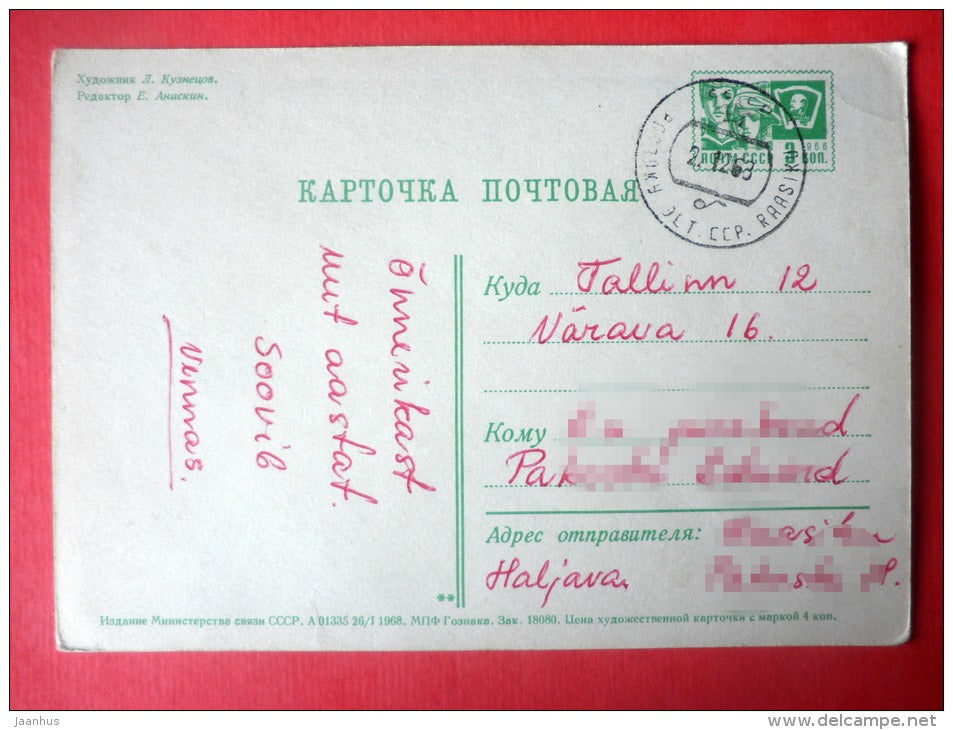 Художник Л. Кузнецов.
Редактор Е. Анискин.
СССР
RAASIKU
ПОЧТА СССР 3 КОП.
1966
КАРТОЧКА ПОЧТОВАЯ
Õnnerikast
uut aastat.
Soovib
Vennas.
Куда Tallinn 12
Värava 16.
Кому
Адрес отправителя:
Haljava.
**
Издание Министерства связи СССР. А 01335 26/I 1968. МПФ Гознака. Зак. 18080. Цена художественной карточки с маркой 4 коп.
Jaanhus
www.delcampe.net